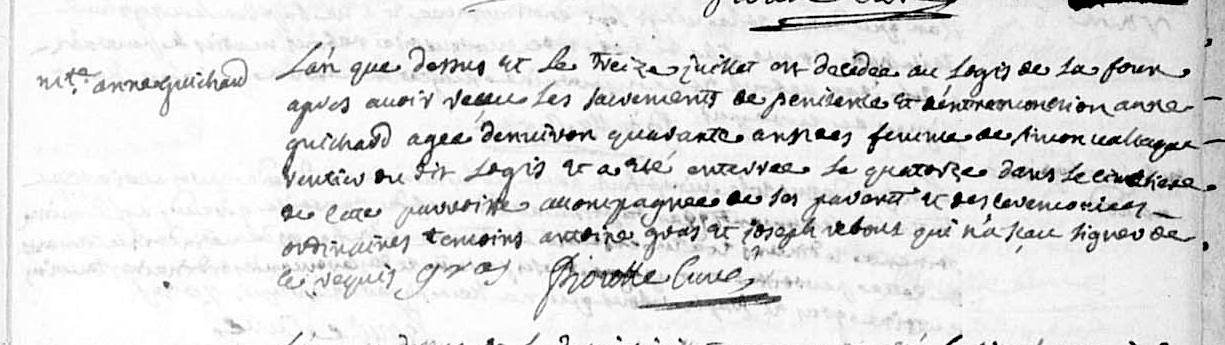 m.te anne guichard
L'an que dessus et le treize juillet est decedée au Logis de La four
apres avoir reçeu Les sacrements de penitence et d'extremonction anne
guichard agée d'environ quarante années femme de simon
rentier du dit Logis et a eté enterrée Le quatorze dans Le cimetiere
de cette parroisse accompagnée de ses parents et des ceremonies
ordinaires temoins antoine gras et joseph rebout qui n'a sçeu signer de
ce requis gras Pioротte Curé